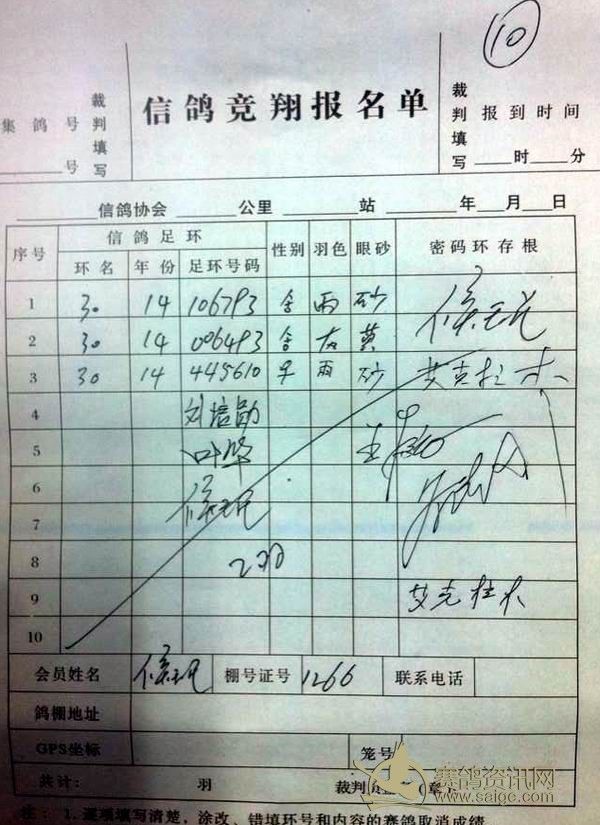 10
集鸽号
号
裁判填写
信鸽竞翔报名单
裁判填写
报到时间
时 分
信鸽协会 公里 站 年 月 日
序号 信鸽足环 性别 羽色 眼砂 密码环存根
环名 年份 足环号码
1 30 14 106793 雨 砂
2 30 14 006493 灰 黄
3 30 14 445610 雨 砂
4 刘培勋
5 叶华
6
7
8
9 艾克拉木
10
会员姓名 棚号证号 1266 联系电话
鸽棚地址
GPS坐标 笼号
共计: 羽 裁判员
注：1. 逐项填写清楚，涂改、错填环号和内容的赛鸽取消成绩
赛鸽资讯网
www.saige.com